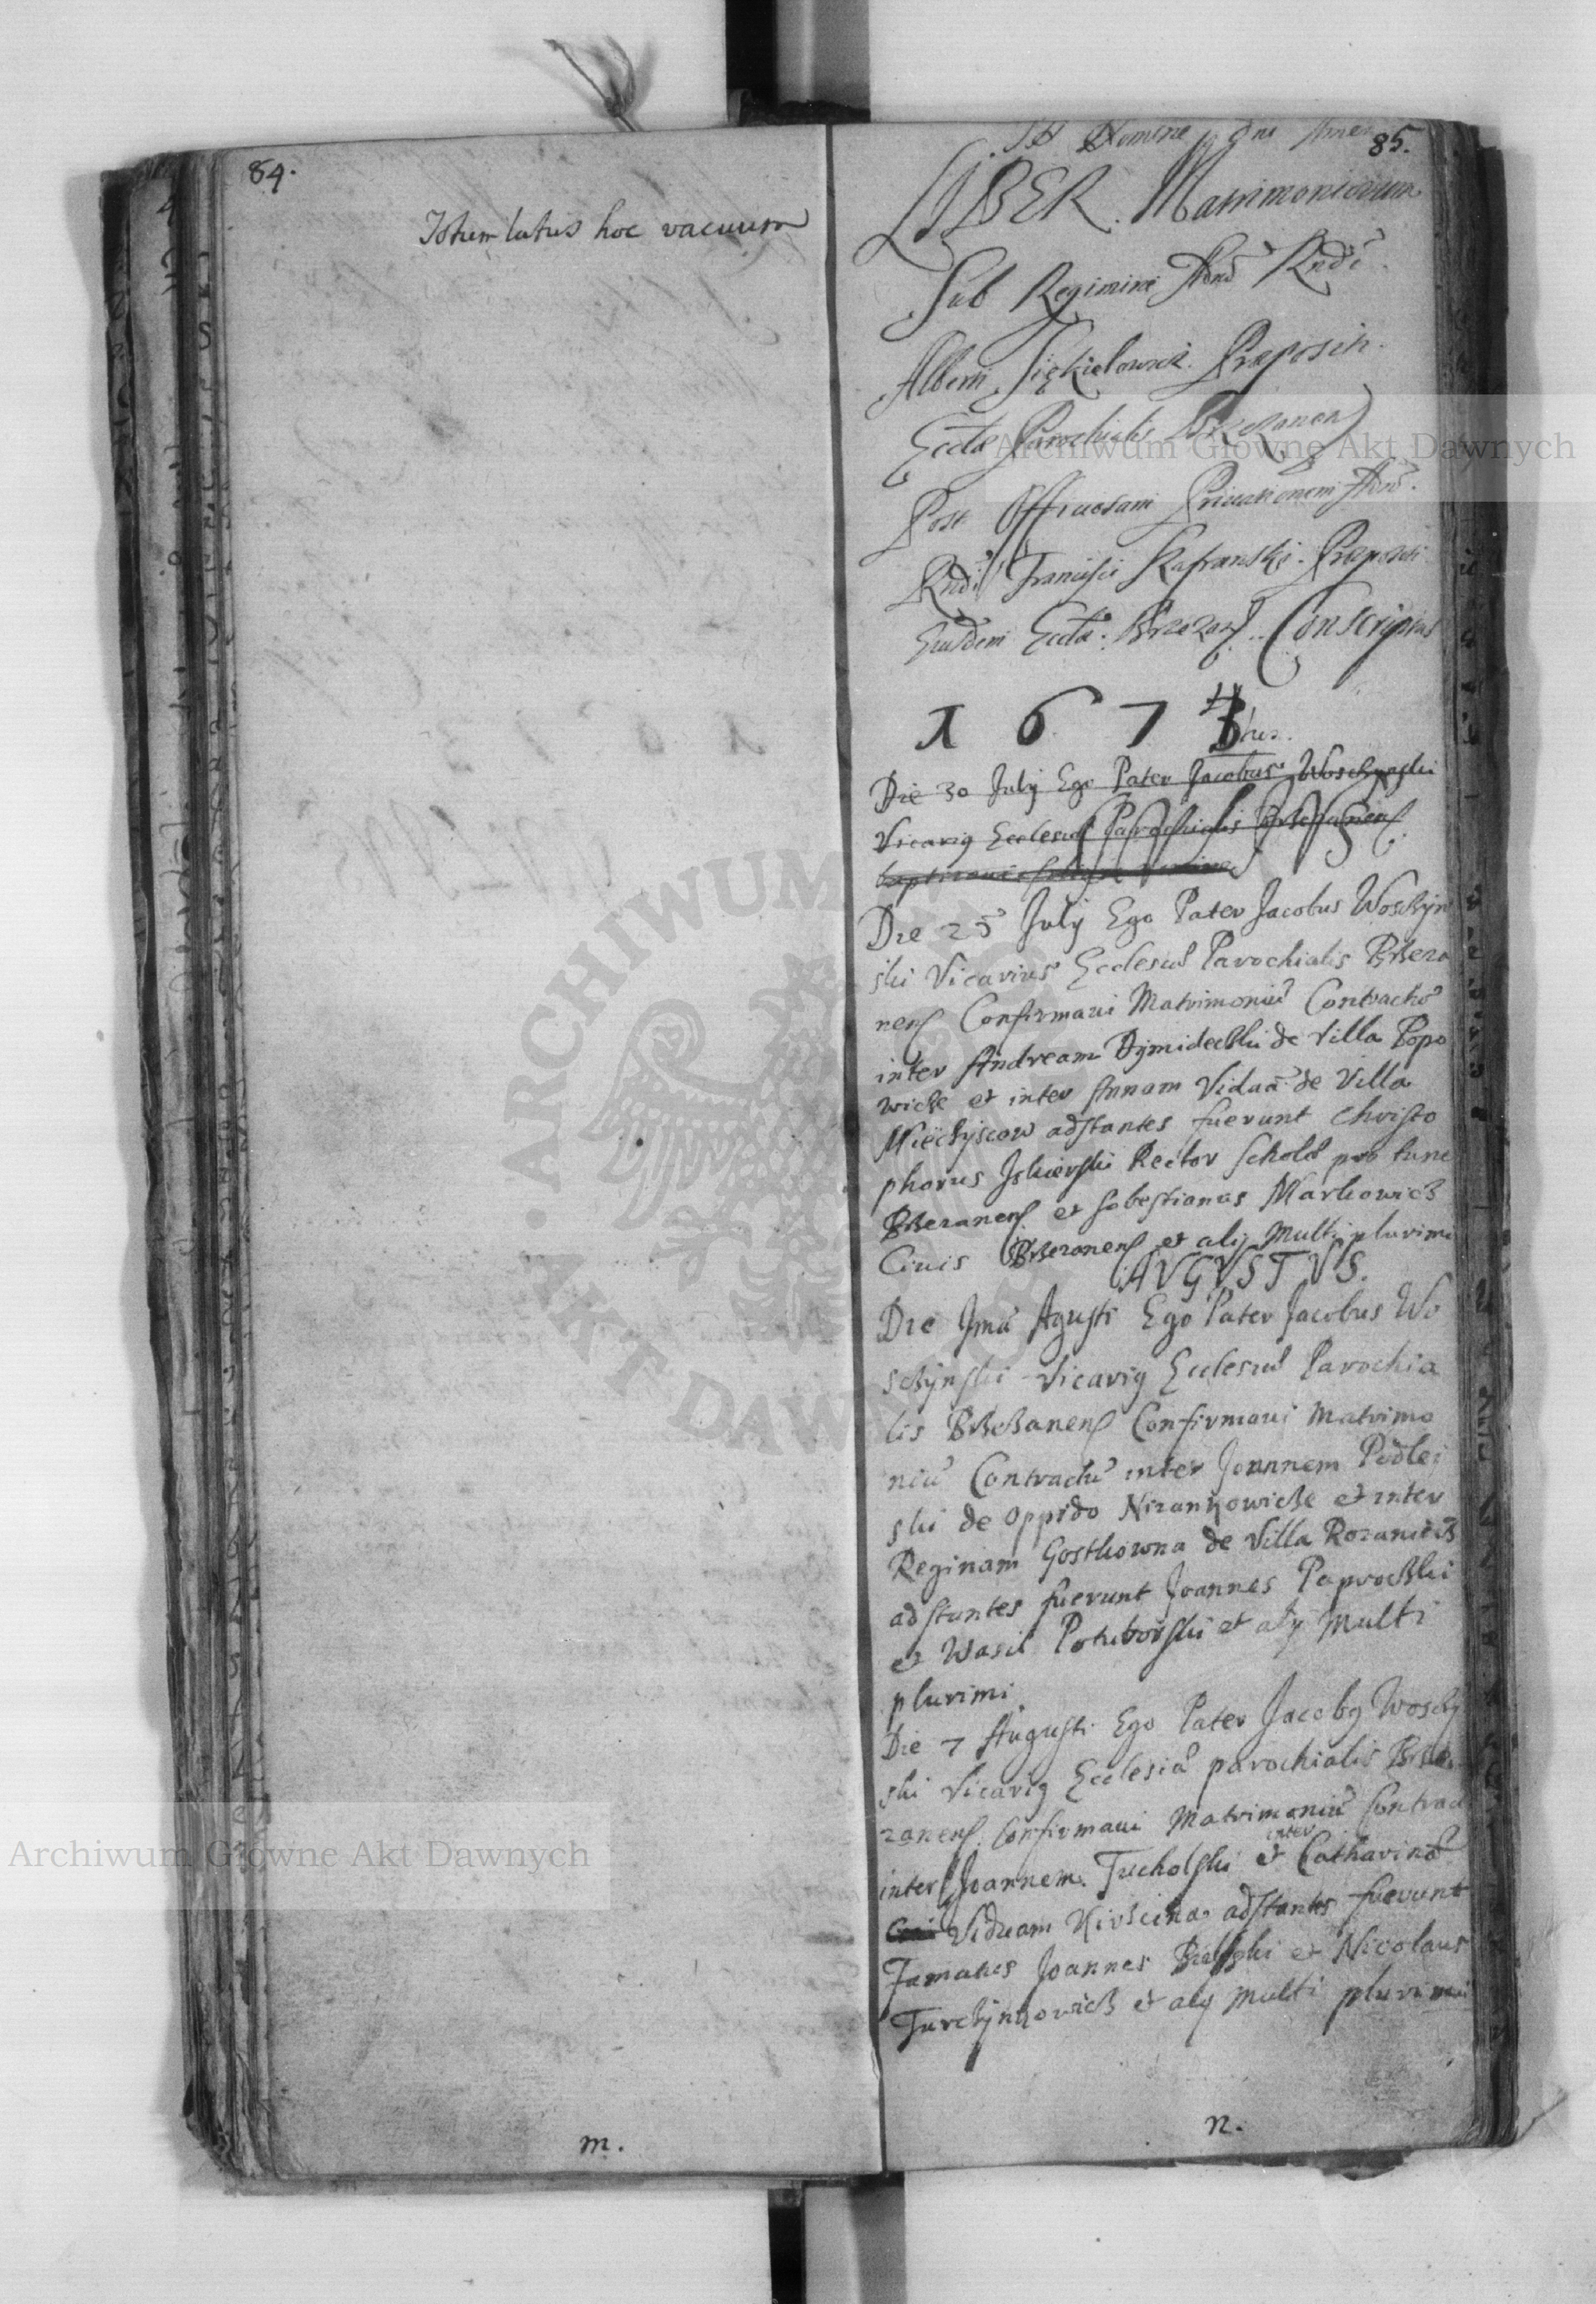 84.
Totum latus hoc vacuum
m.
In Nomine Dni Amen
85.
LIBER Matrimoniorum
Sub Regimine Admo Rndi
Alberti Siękielowicz Præpositi
Ecclæ Parochialis Brzezanen
Post Priuationem Adm
Rndi Francisci Præpositi
Eiusdem Ecclæ Brzezan Conscriptus
1674
Die 30 July Ego Pater Jacobus Woschynski
Vicarig Ecclesiæ Parochialis Brzezanens
baptizaui
Die 25 July Ego Pater Jacobus Woschÿn
ski Vicarius Ecclesiæ Parochialis Brzeza
nens Confirmaui Matrimoniũ Contractũ
inter Andream Dÿmideckki de Villa Popo
wicze et inter Annam Viduã de Villa
Miëchÿscow adstantes fuerunt Christo
phorus Iskierski Rector Scholæ pro tunc
Brzezanens et Sebestianus Markowicz
Ciuis Brzezanens et alij Multi plurimi
AVGVSTVS.
Die Jma Agusti Ego Pater Jacobus Wo
schÿnski Vicarig Ecclesiæ Parochia
lis Brzezanens Confirmaui Matrimo
niũ Contractũ inter Joannem Podlei
ski de Oppido Nizankowicze et inter
Reginam Gostkowna de Villa Rozanicz
adstantes fuerunt Joannes Paprockki
et Wasil Potuborski et alij Multi
plurimi
Die 7 Augusti Ego Pater Jacobg Woschÿ
ski Vicarig Ecclesiæ parochialis Brze
zanens Confirmaui Matrimoniũ Contrac
inter Joannem Tucholski et inter Catharinã
Viduam adstantes fuerunt
Famates Joannes Bielski et Nicolaus
Turchÿnkowicz et alij Multi plurimi
n.
Archiwum Główne Akt Dawnych
Archiwum Główne Akt Dawnych